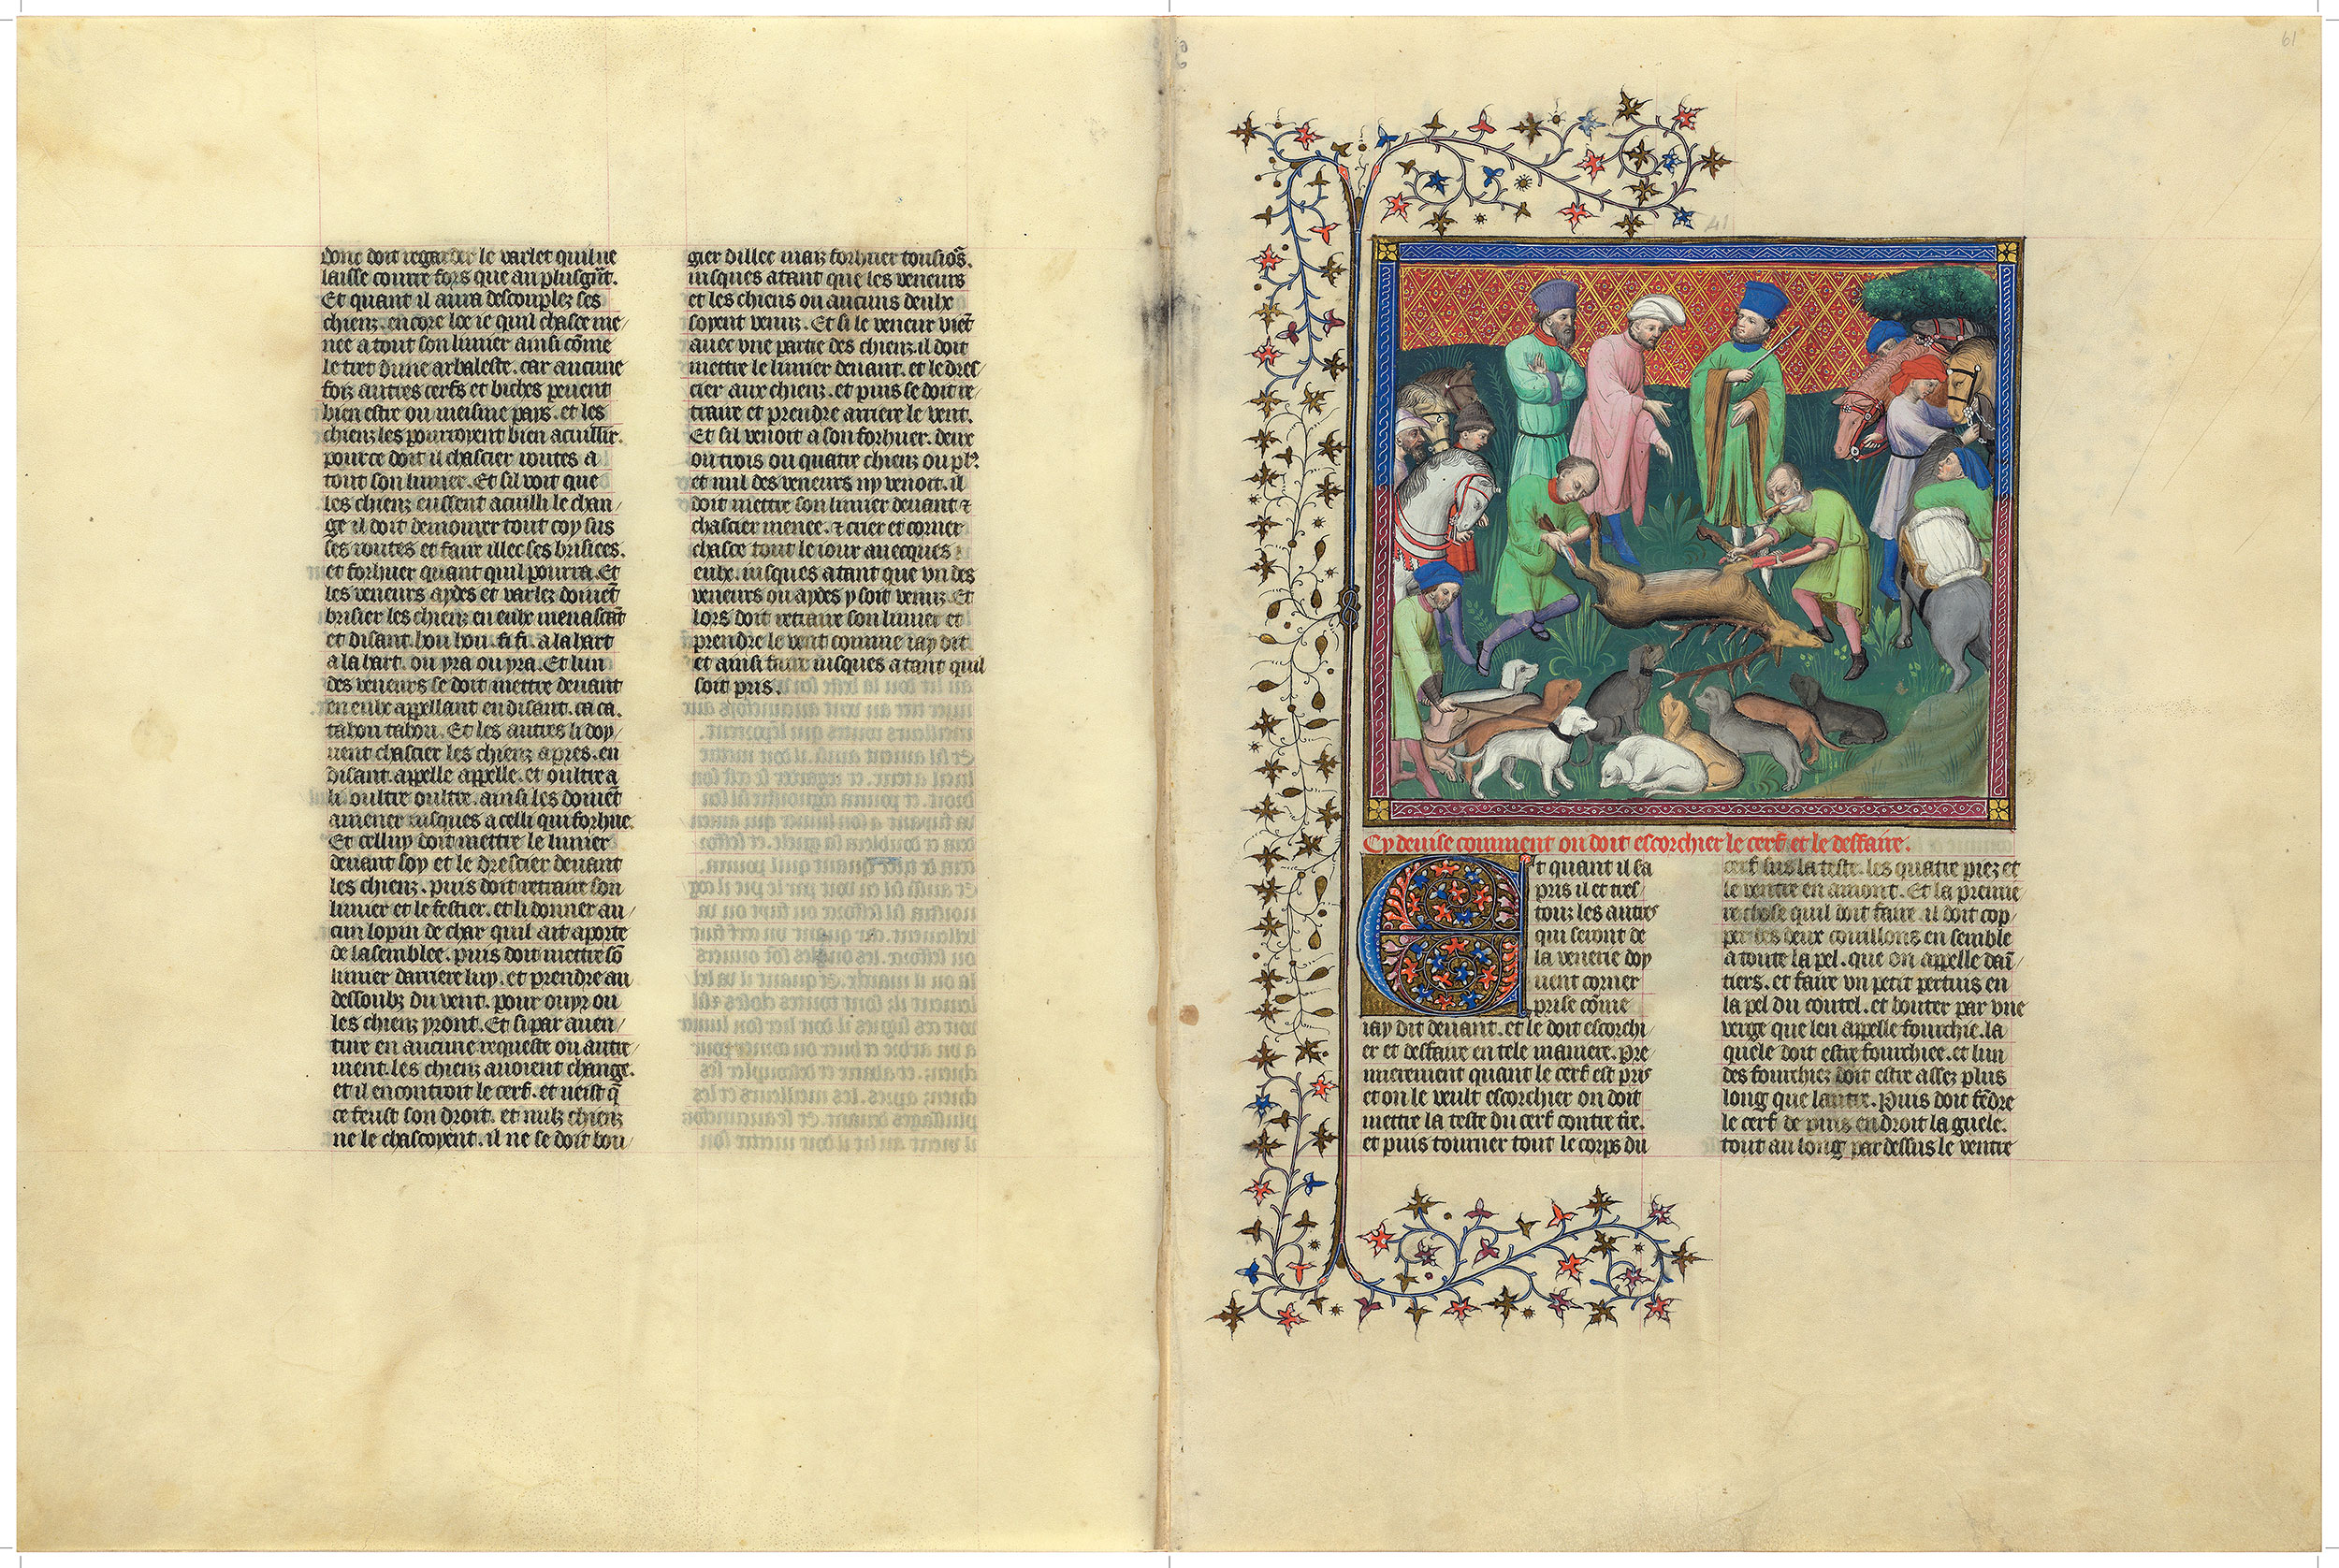 donc doit regarder le varlet quil ne
laisse courre fors que au plus grāt.
Et quant il aura descouplez ses
chienz. encore loe ie quil chasce me/
nee a tout son limier ainsi cōme
le tret dune arbaleste. car aucune
foiz autres cerfs et biches peuent
bien estre ou meisme pays. et les
chienz les pourroyent bien acuillir.
pource doit il chascier routes a
tout son limier. Et sil voit que
les chienz eussent acuilli le chan/
ge il doit demourer tout coy sus
ses routes et faire illec ses brisiees.
et forhuer quant quil pourra. Et
les veneurs aydes et varlez doiuēt
brisier les chienz en eulx menascāt
et disant. hou hou. fi fi. a la hart
a la hart. ou yra ou yra. Et lun
des veneurs se doit mettre deuant
en eulx appellant en disant. ca ca.
tahou tahou. Et les autres li doy/
uent chascier les chienz apres. en
disant. appelle appelle. et oultre a
li oultre oultre. ainsi les doiuēt
amener iusques a celli qui forhue.
Et celluy doit mettre le limier
deuant soy et le drescier deuant
les chienz. puis doit retraire son
limier et le festier. et li donner au/
cun lopin de char quil ait aporte
de lasemblee. puis doit mettre sō
limier darriere luy. et prendre au
dessoubz du vent. pour ouyr ou
les chienz yront. Et si par auen/
ture en aucune requeste ou autre/
ment. les chienz auoient change.
et il encontroit le cerf. et veist q̄
ce feust son droit. et nulz chienz
ne le chascoyent. il ne se doit bou/
gier dillec maiz forhuer tousiōs.
iusques atant que les veneurs
et les chiens ou aucuns deulx
soyent venuz. Et si le veneur viēt
auec vne partie des chienz. il doit
mettre le limier deuant. et le dres/
cier aux chienz. et puis se doit re/
traire et prendre arriere le vent.
Et sil venoit a son forhuer. deux
ou trois ou quatre chienz ou plꝰ
et nul des veneurs ny venoit. il
doit mettre son limier deuant ⁊
chascier menee. ⁊ crier et corner
chasce tout le iour auecques
eulx. iusques atant que vn des
veneurs ou aydes y soit venuz. Et
lors doit retraire son limier et
prendre le vent comme iay dit
et ainsi faire iusques a tant quil
soit pris.
61
41
Cy deuise comment on doit escorchier le cerf et le deffaire.
Et quant il sa
pris il et tres/
touz les autres
qui seront de
la venerie doy
uent corner
prise cōme
iay dit deuant. et le doit escorchi/
er et desfaire en tele maniere. Pre/
mierement quant le cerf est pris
et on le veult escorchier on doit
mettre la teste du cerf contre t̄re.
et puis tourner tout le corps du
cerf sus la teste. les quatre piez et
le ventre en amont. Et la premie/
re chose quil doit faire. il doit cop/
per les deux couillons en semble
a toute la pel. que on appelle daī/
tiers. et faire vn petit pertuis en
la pel du coutel. et bouter par vne
verge que len appelle fourchie. la
quele doit estre fourchiee. et lun
des fourchiez doit estre assez plus
long que lautre. Puis doit fēdre
le cerf de puis en droit la guele.
tout au long par dessus le ventre